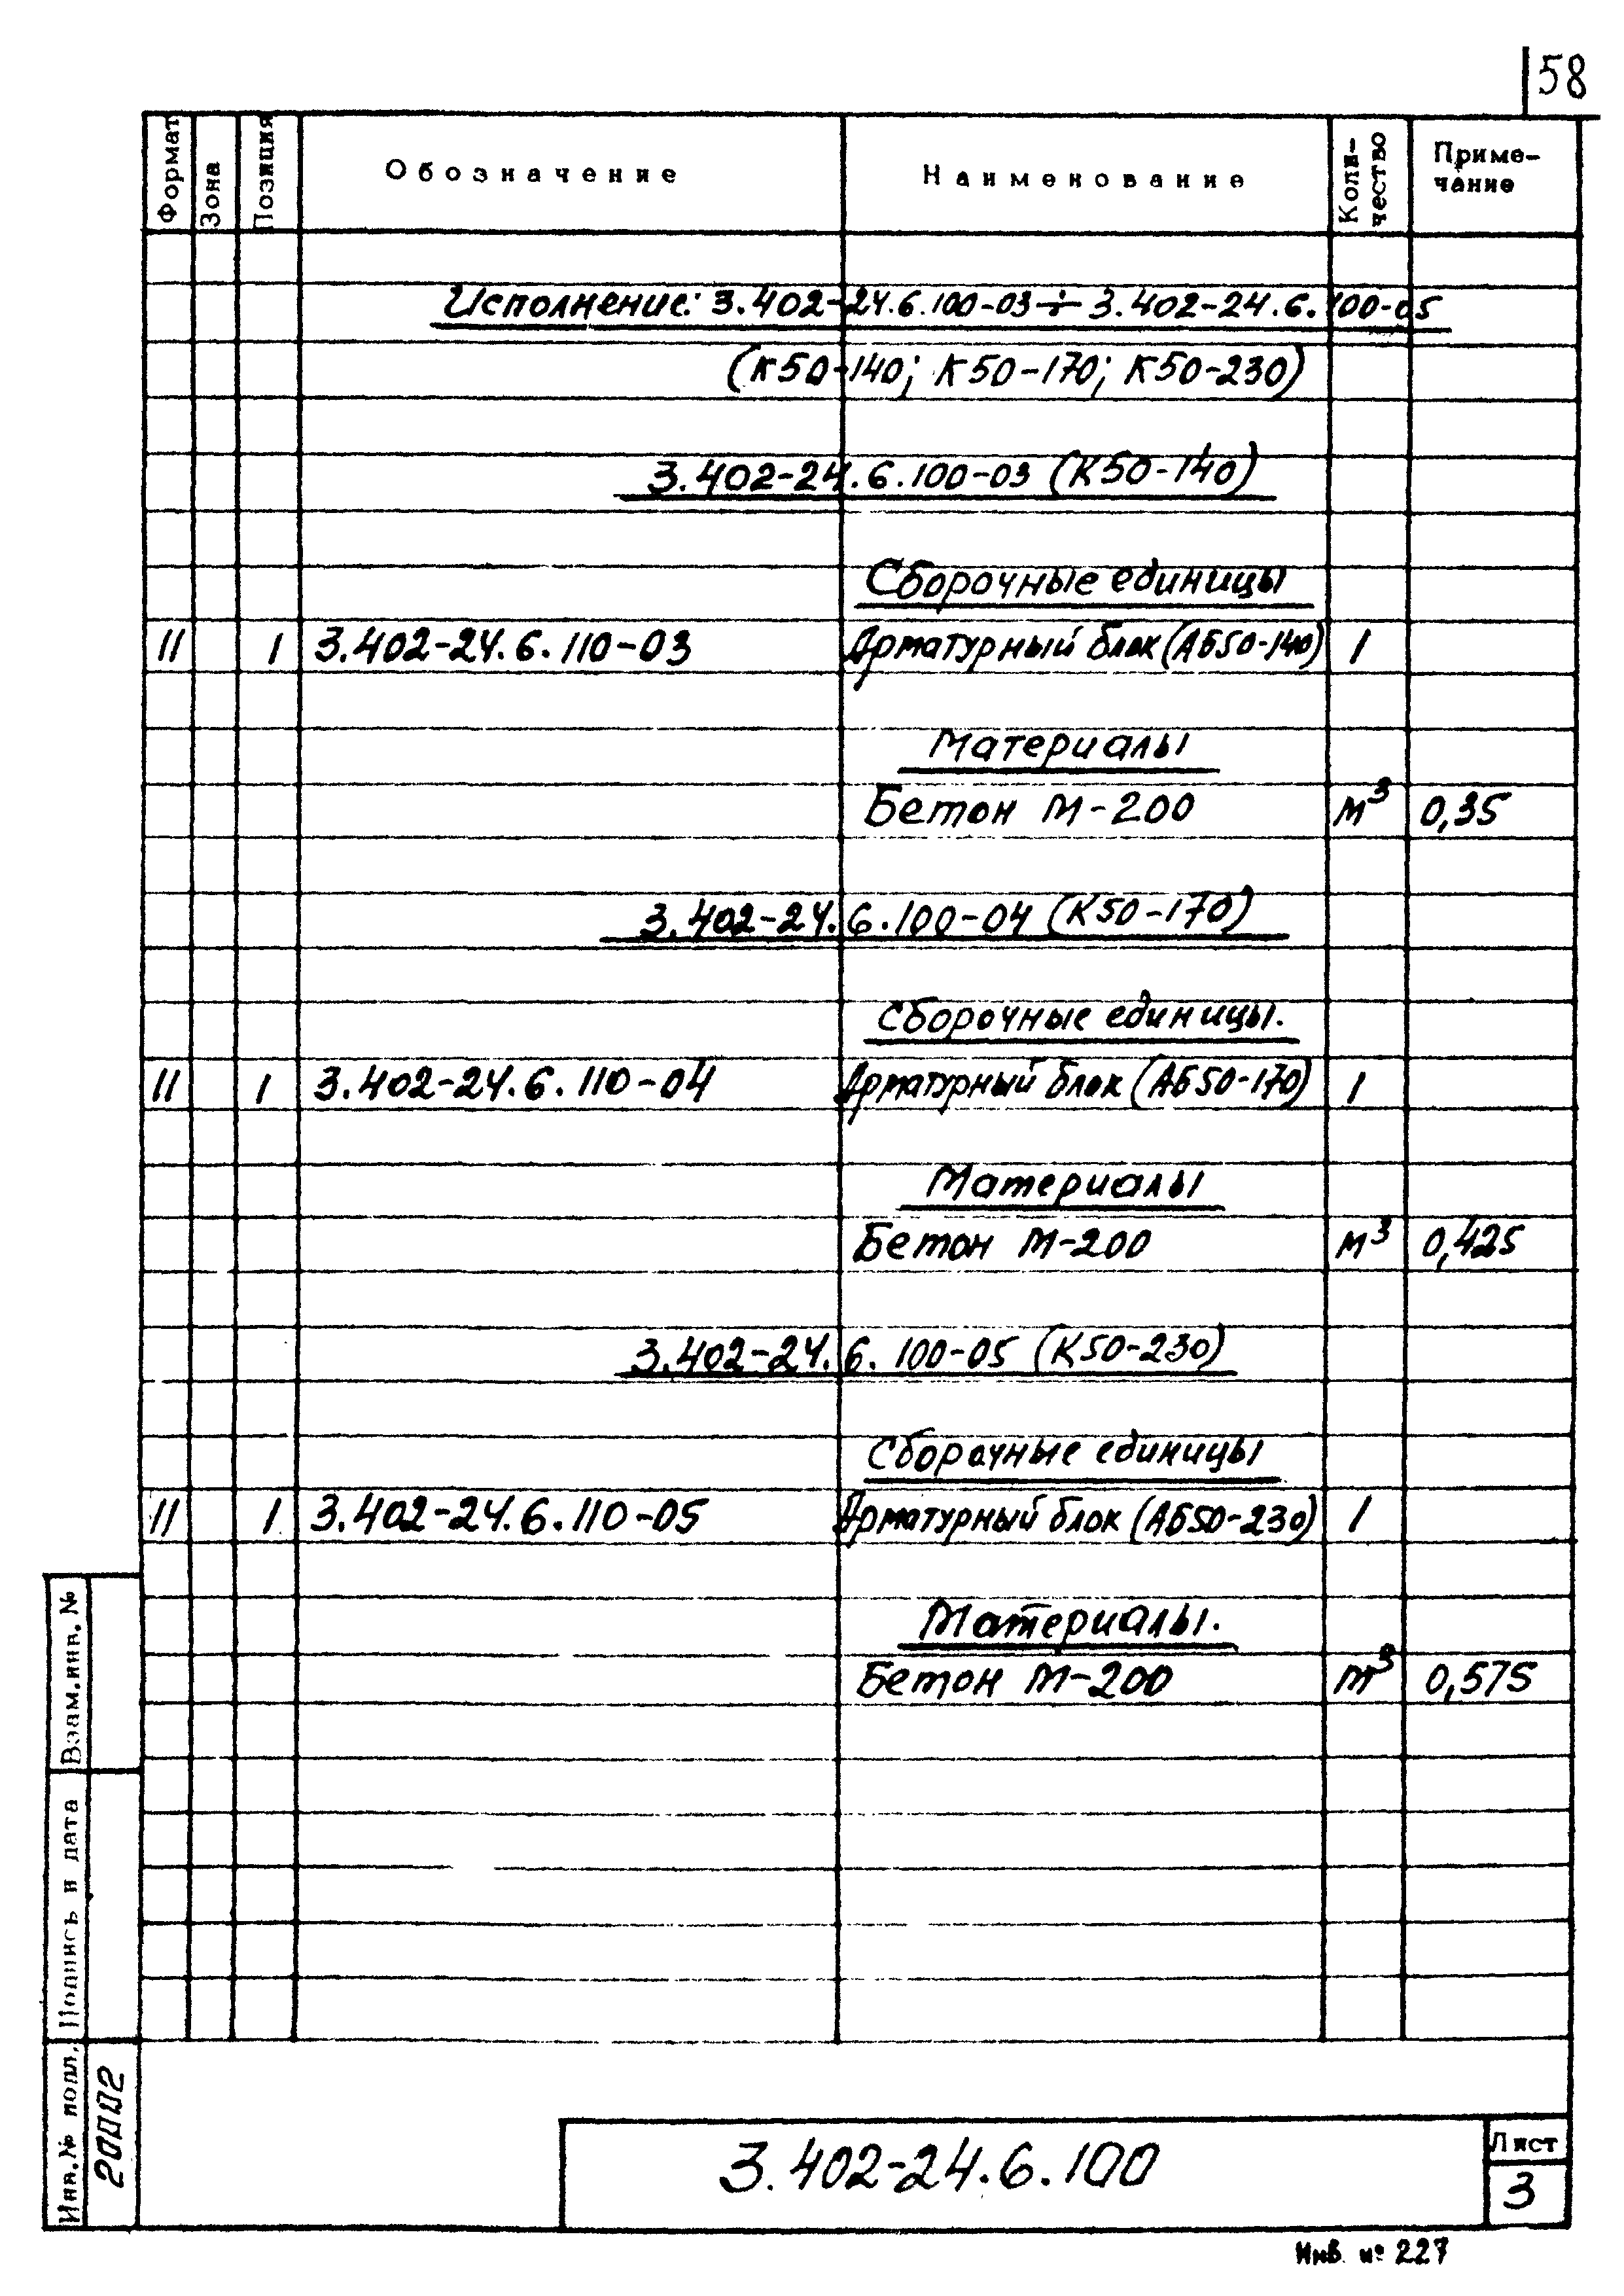 58
Формат Зона Позиция Обозначение Наименование Коли-чество Приме-чание
Исполнение: 3.402-24.6.100-03÷3.402-24.6.100-05
(К50-140; К50-170; К50-230)
3.402-24.6.100-03 (К50-140)
Сборочные единицы
11 1 3.402-24.6.110-03 Арматурный блок (АБ50-140) 1
Материалы
Бетон М-200 м³ 0,35
3.402-24.6.100-04 (К50-170)
Сборочные единицы.
11 1 3.402-24.6.110-04 Арматурный блок (АБ50-170) 1
Материалы
Бетон М-200 м³ 0,425
3.402-24.6.100-05 (К50-230)
Сборочные единицы
11 1 3.402-24.6.110-05 Арматурный блок (АБ50-230) 1
Материалы.
Бетон М-200 м³ 0,575
Взам.инв.№
Подпись и дата
Инв.№ подл.
20002
3.402-24.6.100
Лист
3
Инв. № 227